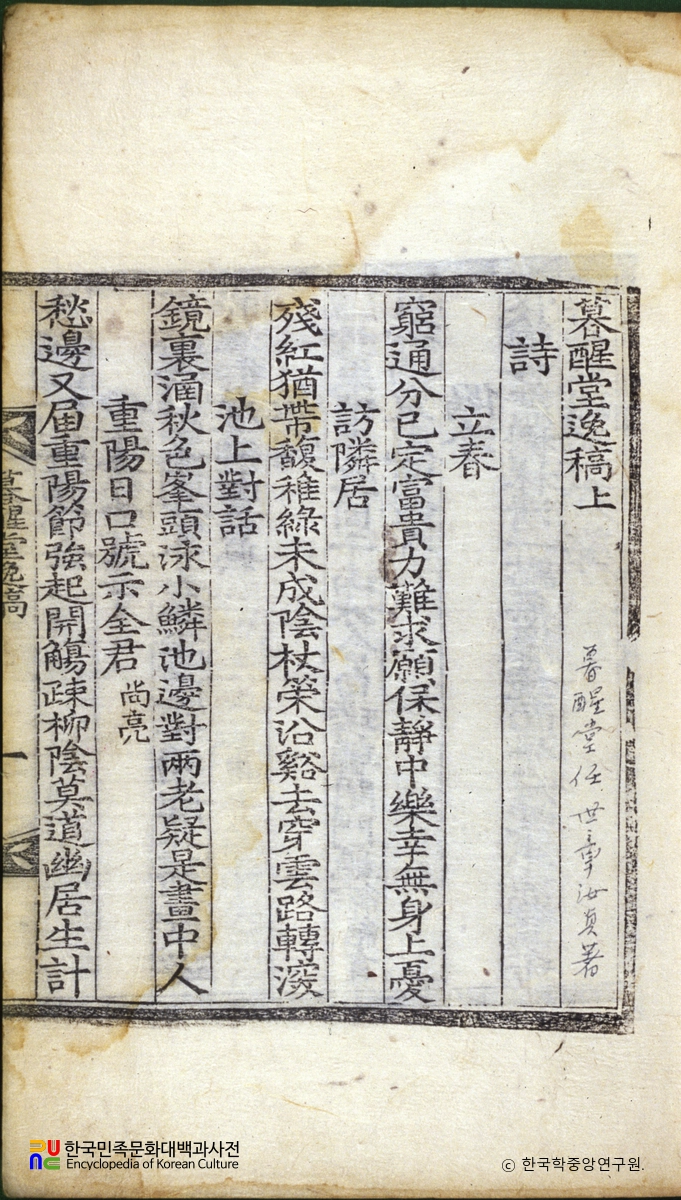 暮醒堂逸稿上
暮醒堂任世章汝眞著
詩
立春
窮通分已定富貴力難求願保靜中樂幸無身上憂
訪隣居
殘紅猶帶馥稚綠未成陰杖策沿谿去穿雲路轉深
池上對話
鏡裏涵秋色峯頭泳小鱗池邊對兩老疑是畫中人
重陽日口號示全君尙亮
愁邊又届重陽節強起開觴疎柳陰莫道幽居生計
暮醒堂逸稿
一
한국민족문화대백과사전
Encyclopedia of Korean Culture
© 한국학중앙연구원.